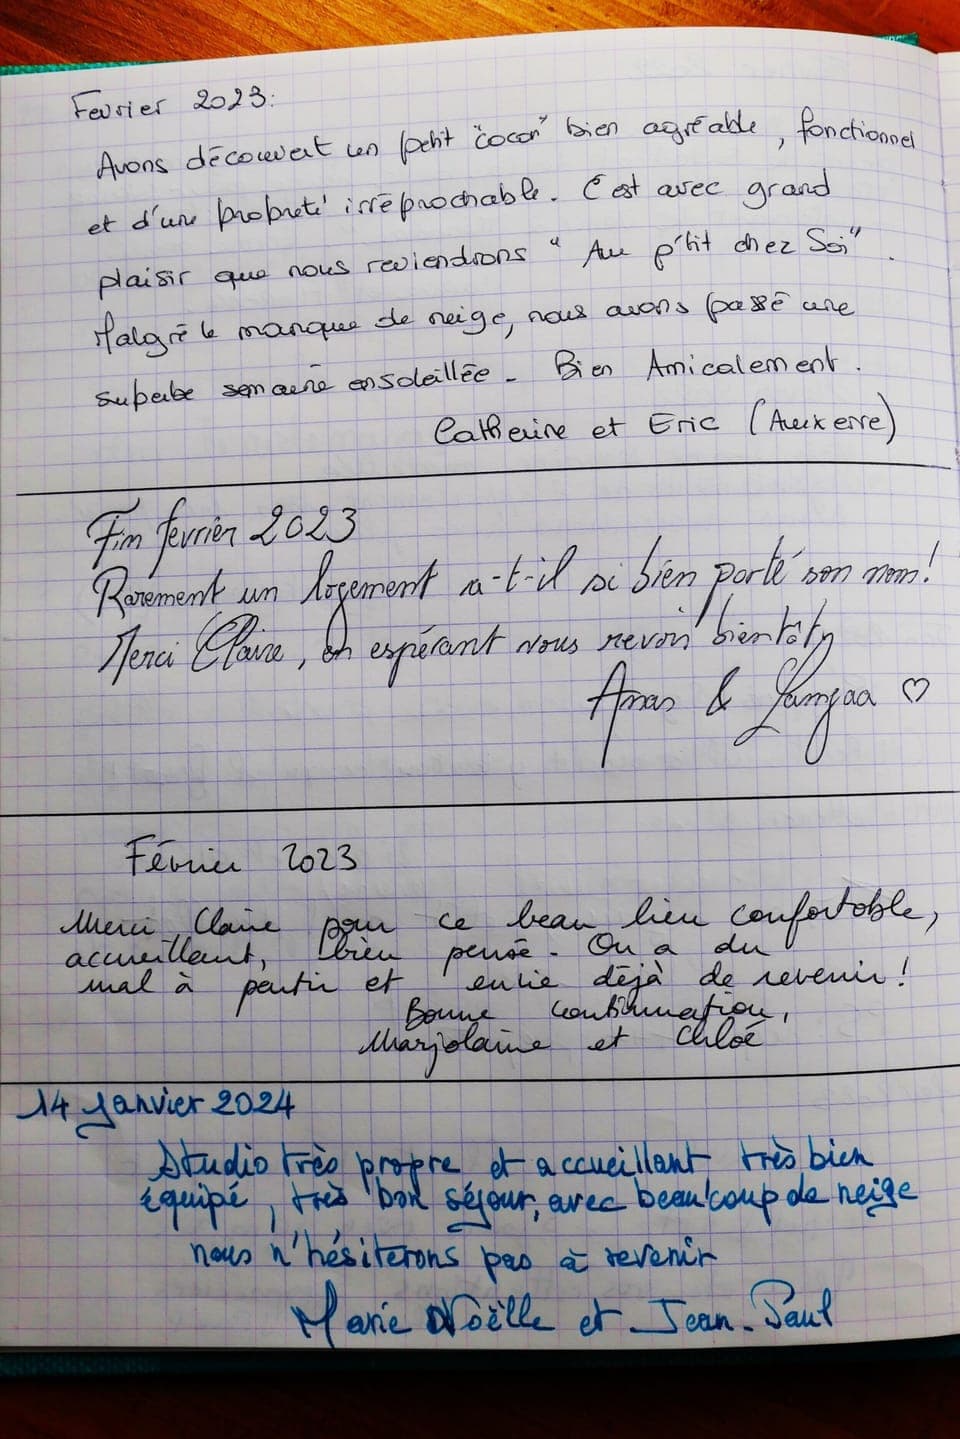 Fevrier 2023:
Avons découvert un petit "cocon" bien agréable, fonctionnel
et d'une propreté irréprochable. C'est avec grand
plaisir que nous reviendrons "Au p'tit chez Soi".
Malgré le manque de neige, nous avons passé une
superbe semaine ensoleillée. Bien Amicalement.
Catherine et Eric (Auxerre)
Fin fevrier 2023
Rarement un logement a-t-il si bien porté son nom!
Merci Claire, en espérant vous revoir bientôt,
Anas & ♡
Février 2023
Merci Claire pour ce beau lieu confortable,
accueillant, bien pensé. On a du
mal à partir et envie déjà de revenir!
Bonne continuation,
Marjolaine et Chloé
14 Janvier 2024
Studio très propre et accueillant très bien
équipé, très bon séjour, avec beaucoup de neige
nous n'hésiterons pas à revenir
Marie Noëlle et Jean-Paul